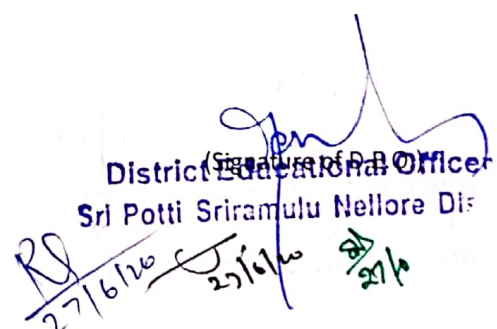 (Signature of D.E.O.)
District Educational Officer
Sri Potti Sriramulu Nellore Dis
27/6/20
27/6/20
27/6